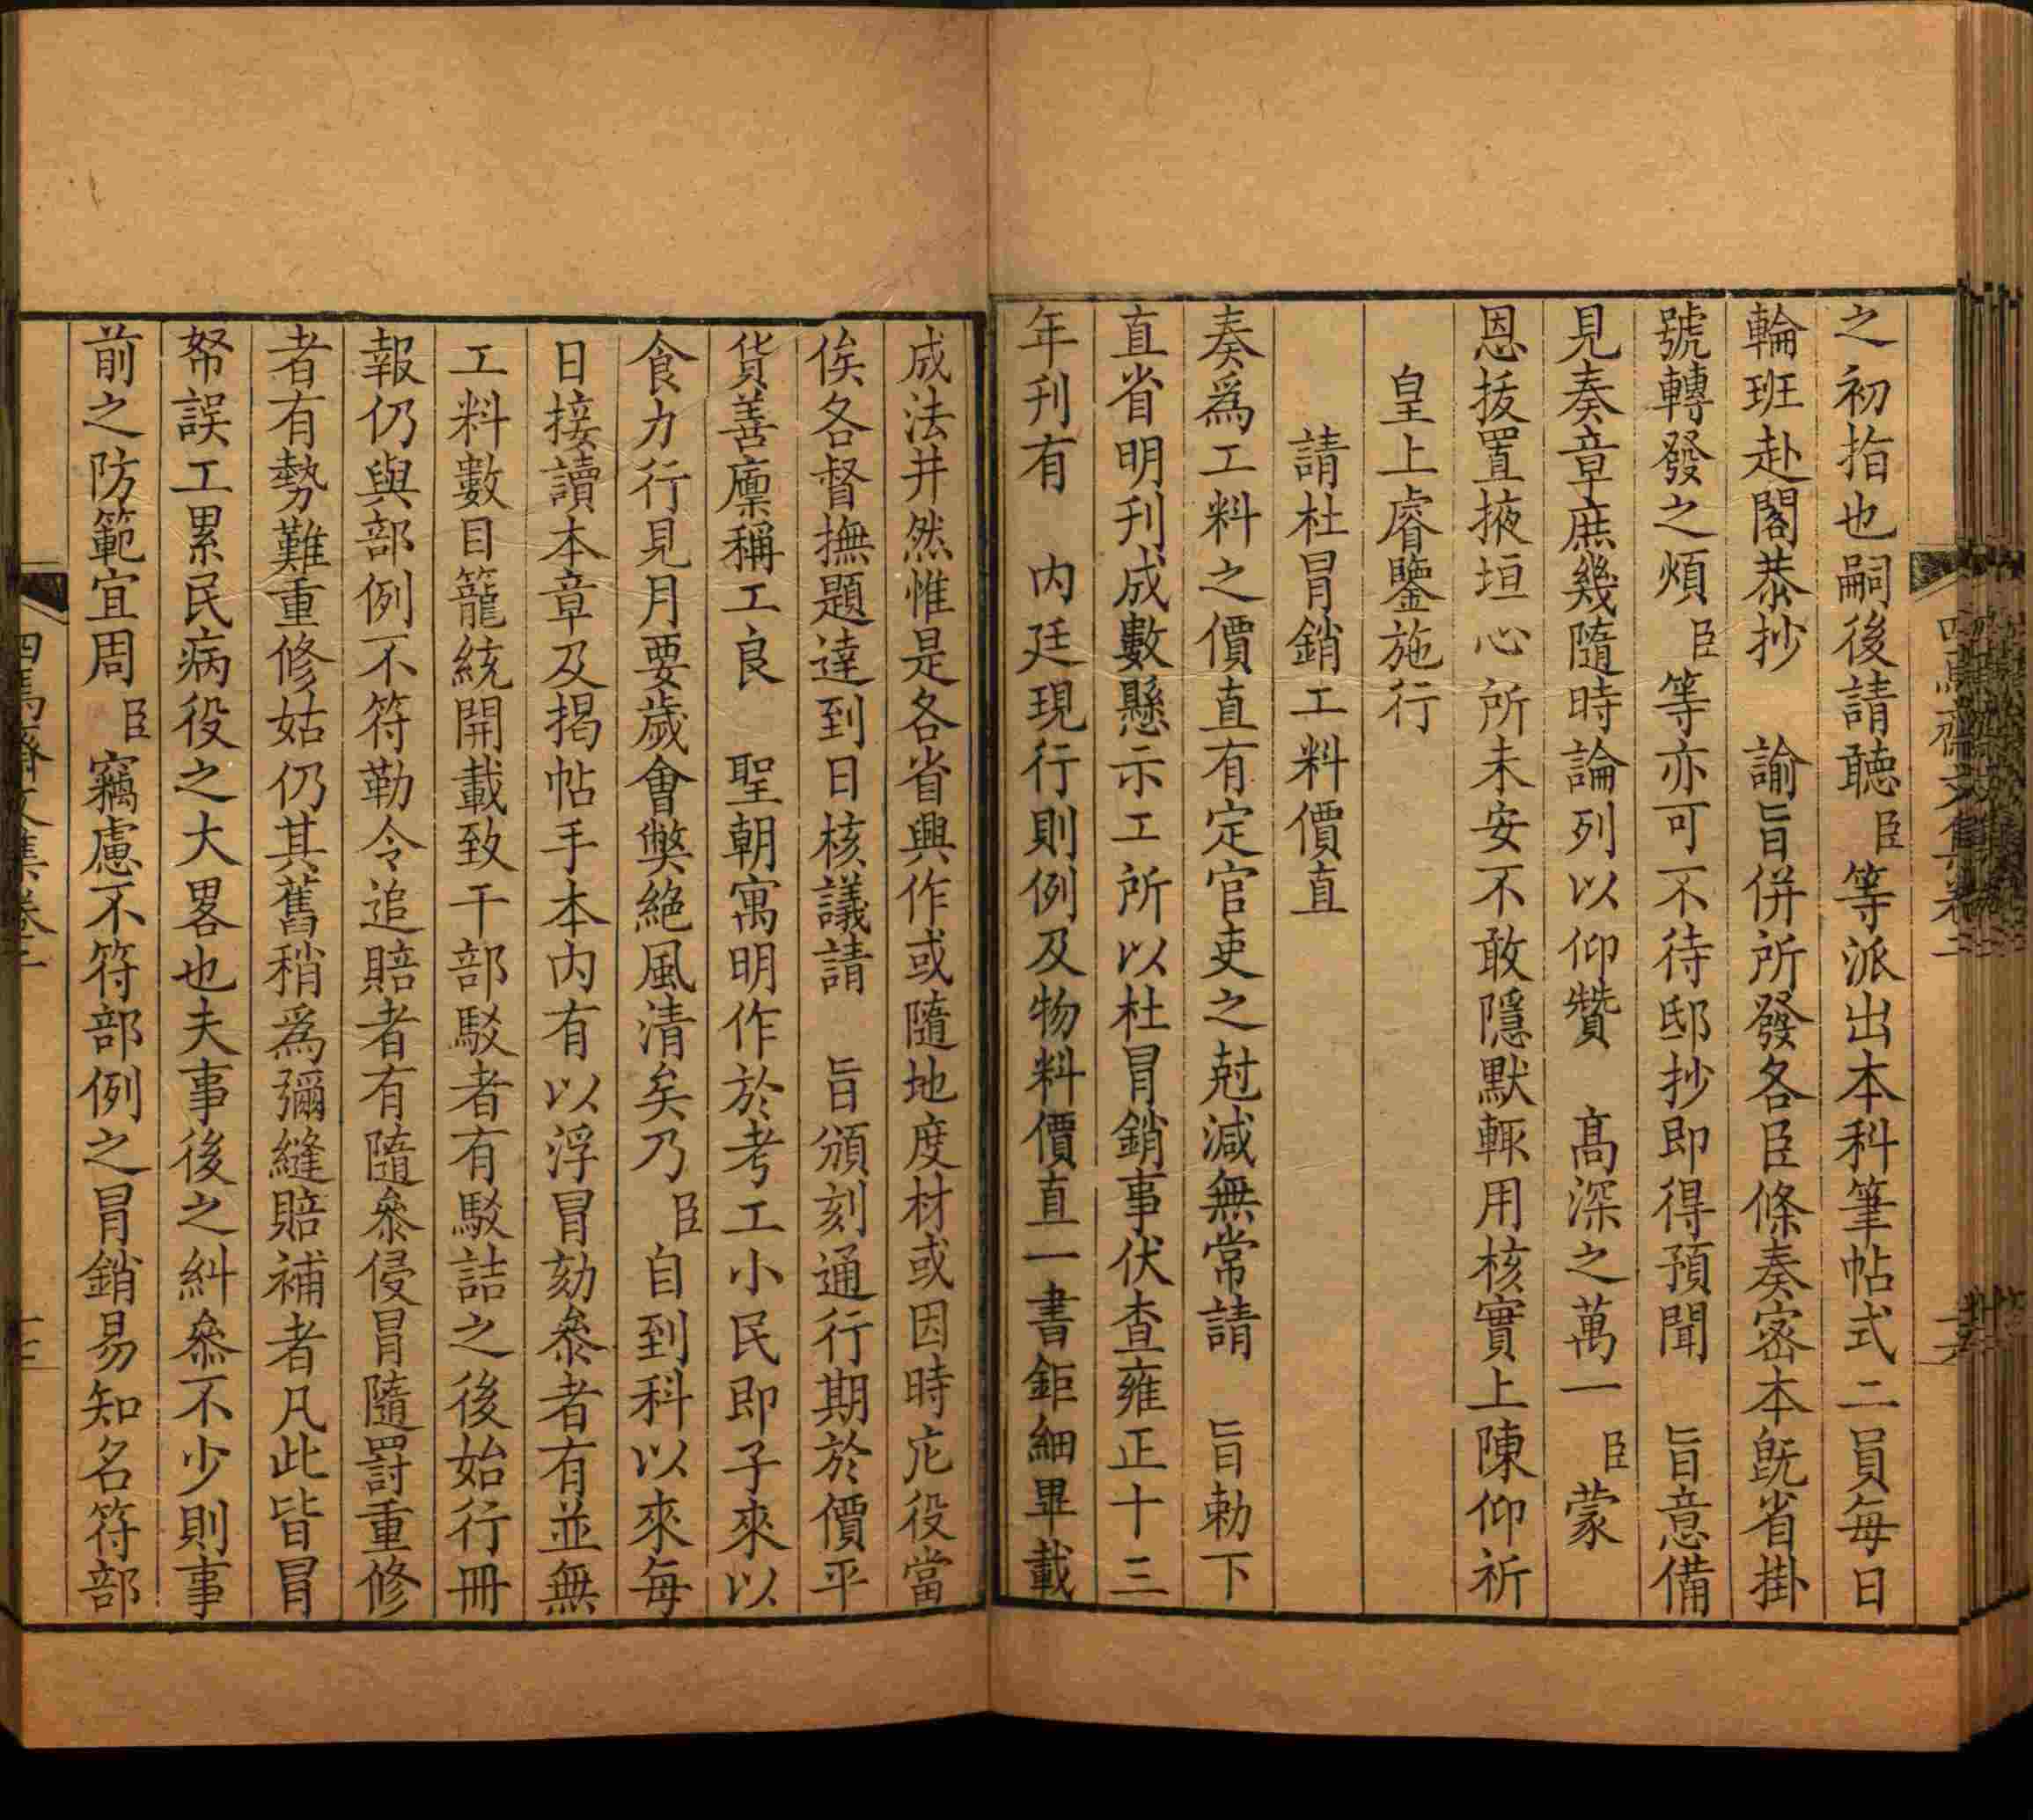 之初指也嗣後請聽臣等派出本科筆帖式二員每日
輪班赴閣恭抄　諭旨併所發各臣條奏密本旣省掛
號轉發之煩臣等亦可不待邸抄即得預聞　旨意備
見奏章庶幾隨時論列以仰贊　高深之萬一臣蒙
恩拔置掖垣心所未安不敢隱默輒用核實上陳仰祈
皇上睿鑒施行
請杜冒銷工料價直
奏爲工料之價直有定官吏之尅減無常請　旨勅下
直省明刊成數懸示工所以杜冒銷事伏查雍正十三
年刊有　内廷現行則例及物料價直一書鉅細畢載
成法井然惟是各省興作或隨地度材或因時庀役當
俟各督撫題達到日核議請　旨頒刻通行期於價平
貨善廩稱工良　聖朝寓明作於考工小民即子來以
食力行見月要歲會獘絶風清矣乃臣自到科以來每
日接讀本章及揭帖手本内有以浮冒劾叅者有並無
工料數目籠統開載致干部駁者有駁詰之後始行冊
報仍與部例不符勒令追賠者有隨叅侵冒隨罸重修
者有勢難重修姑仍其舊稍爲彌縫賠補者凡此皆冒
帑誤工累民病役之大畧也夫事後之糾叅不少則事
前之防範宜周臣竊慮不符部例之冒銷易知名符部
四焉齋文集卷二